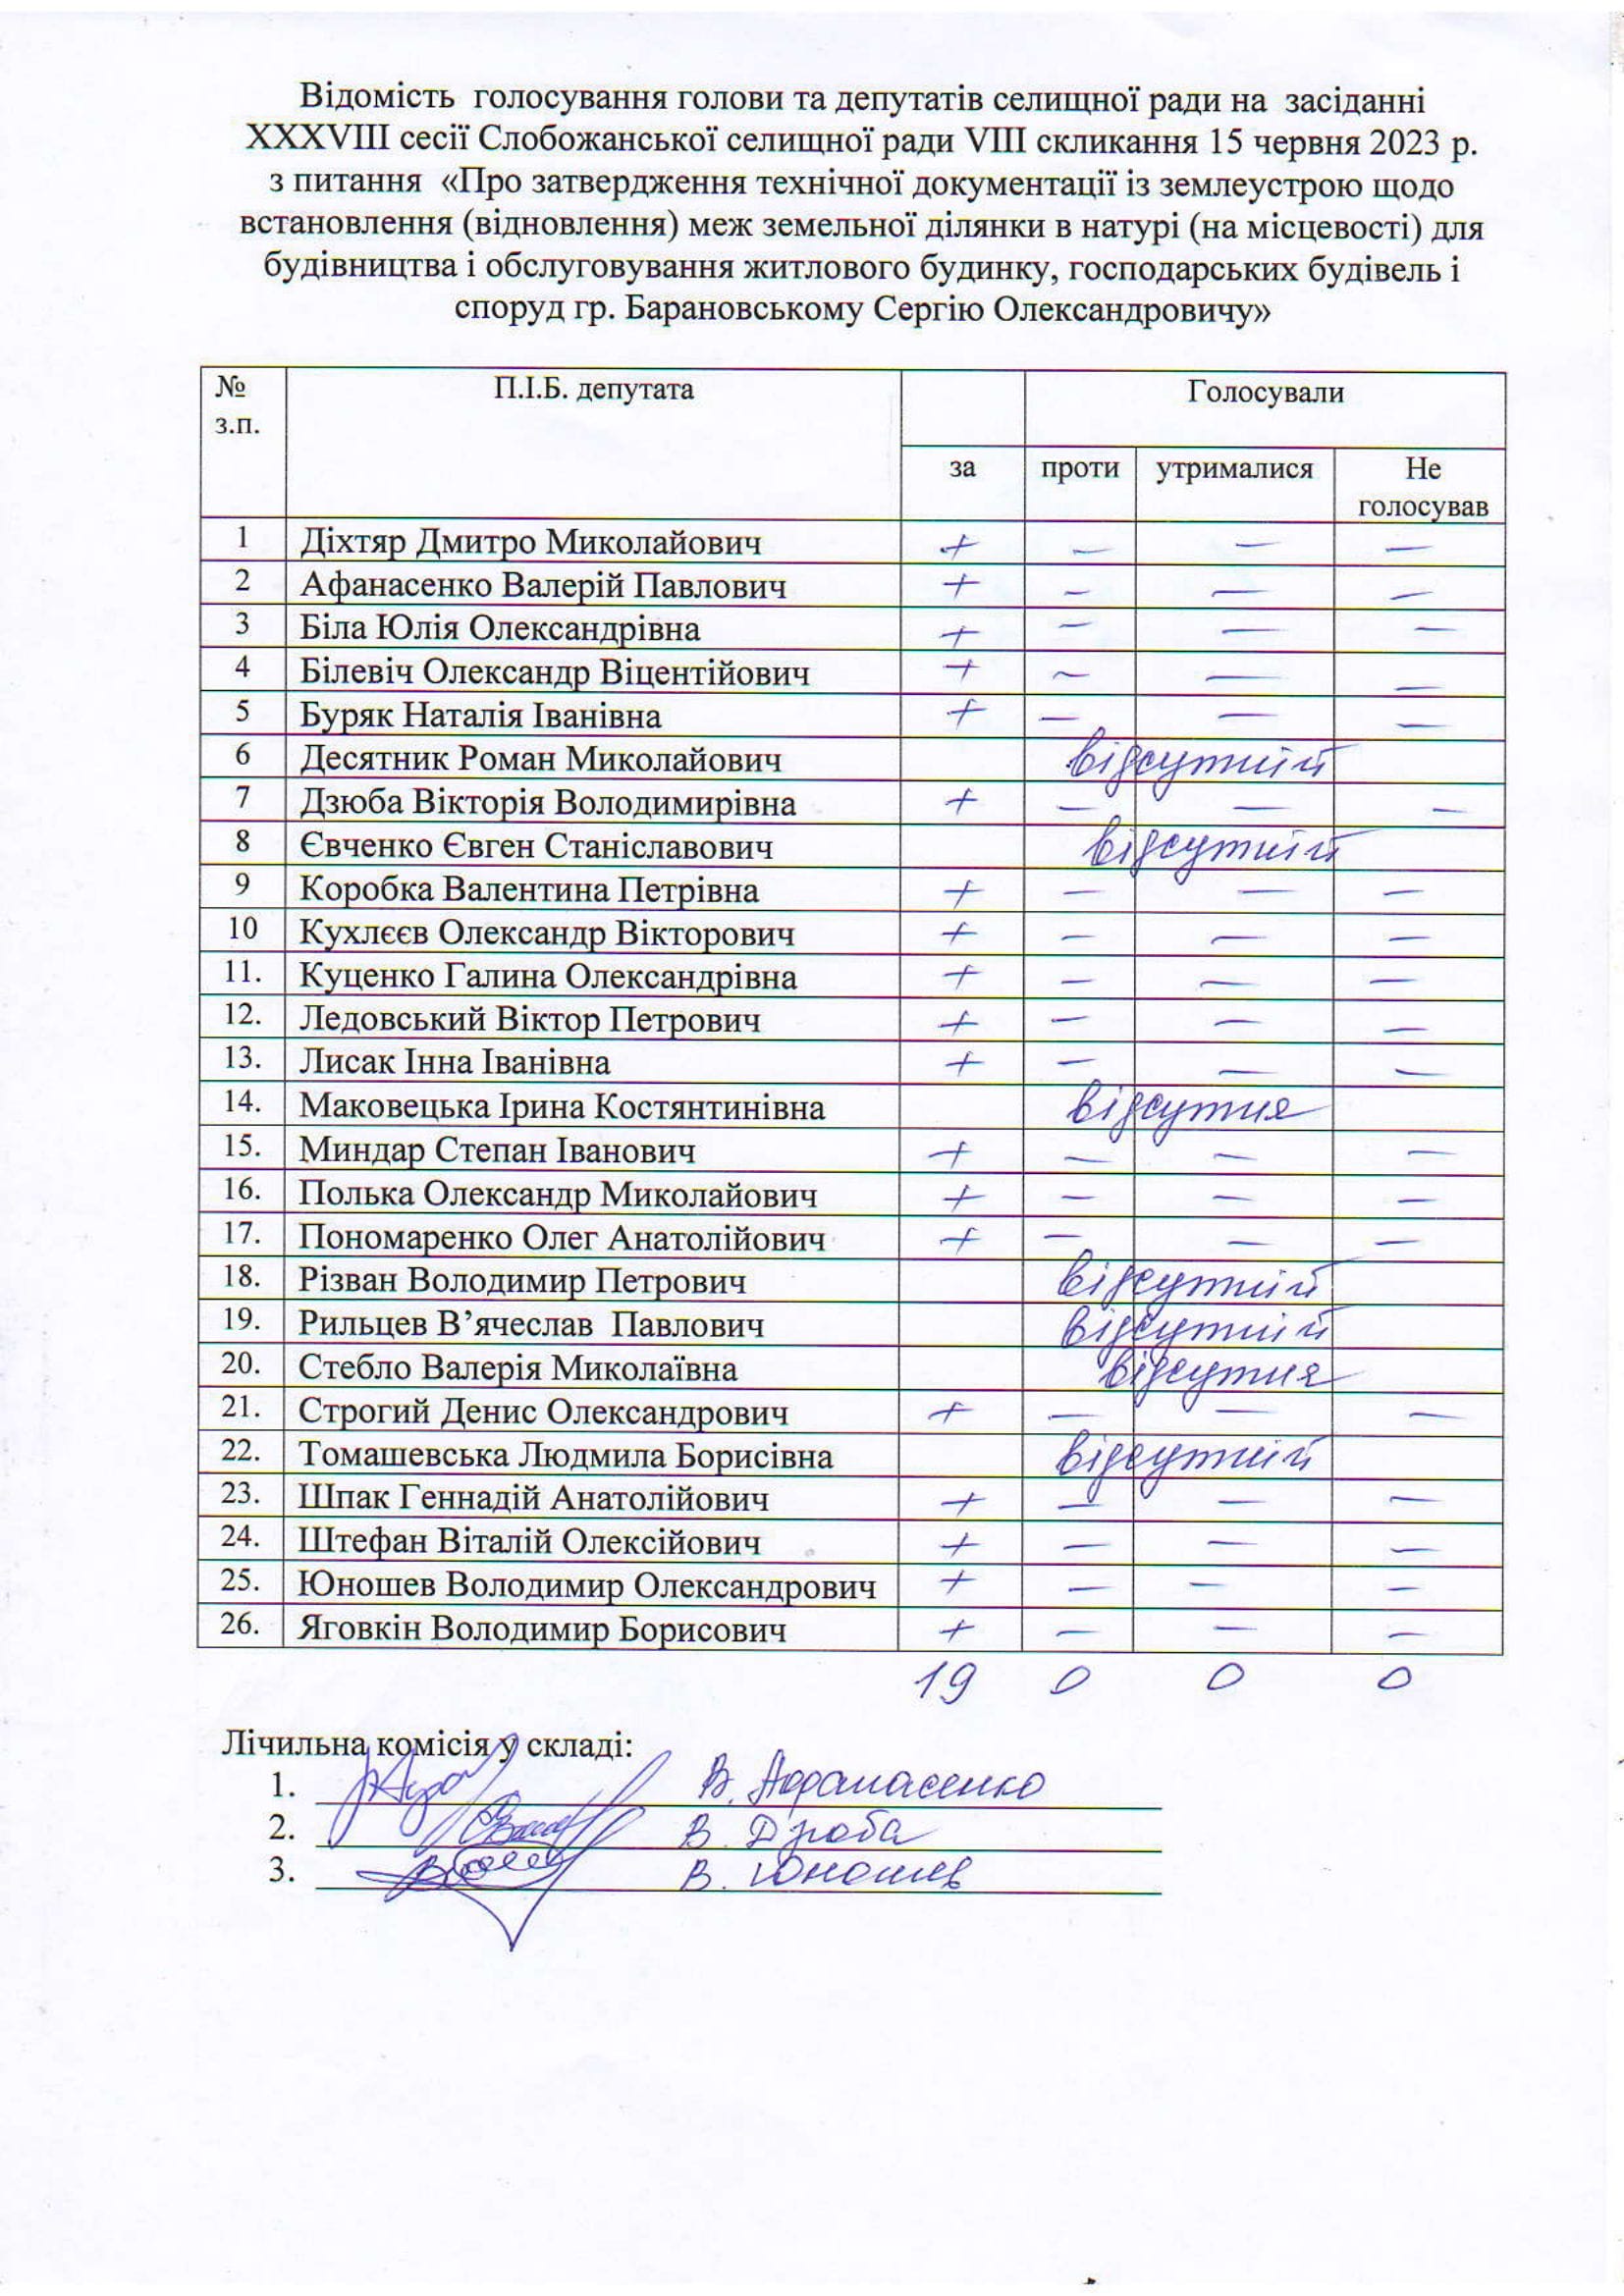 Відомість голосування голови та депутатів селищної ради на засіданні
XXXVIII сесії Слобожанської селищної ради VIII скликання 15 червня 2023 р.
з питання «Про затвердження технічної документації із землеустрою щодо
встановлення (відновлення) меж земельної ділянки в натурі (на місцевості) для
будівництва і обслуговування житлового будинку, господарських будівель і
споруд гр. Барановському Сергію Олександровичу»
№ з.п. П.І.Б. депутата Голосували
за проти утрималися Не голосував
1 Діхтяр Дмитро Миколайович + — — —
2 Афанасенко Валерій Павлович + — — —
3 Біла Юлія Олександрівна + — — —
4 Білевіч Олександр Віцентійович + — — —
5 Буряк Наталія Іванівна + — — —
6 Десятник Роман Миколайович відсутній
7 Дзюба Вікторія Володимирівна + — — —
8 Євченко Євген Станіславович відсутній
9 Коробка Валентина Петрівна + — — —
10 Кухлєєв Олександр Вікторович + — — —
11. Куценко Галина Олександрівна + — — —
12. Ледовський Віктор Петрович + — — —
13. Лисак Інна Іванівна + — — —
14. Маковецька Ірина Костянтинівна відсутня
15. Миндар Степан Іванович + — — —
16. Полька Олександр Миколайович + — — —
17. Пономаренко Олег Анатолійович + — — —
18. Різван Володимир Петрович відсутній
19. Рильцев В’ячеслав Павлович відсутній
20. Стебло Валерія Миколаївна відсутня
21. Строгий Денис Олександрович + — — —
22. Томашевська Людмила Борисівна відсутній
23. Шпак Геннадій Анатолійович + — — —
24. Штефан Віталій Олексійович + — — —
25. Юношев Володимир Олександрович + — — —
26. Яговкін Володимир Борисович + — — —
19 0 0 0
Лічильна комісія у складі:
1. В. Афанасенко
2. В. Дзюба
3. В. Юношев